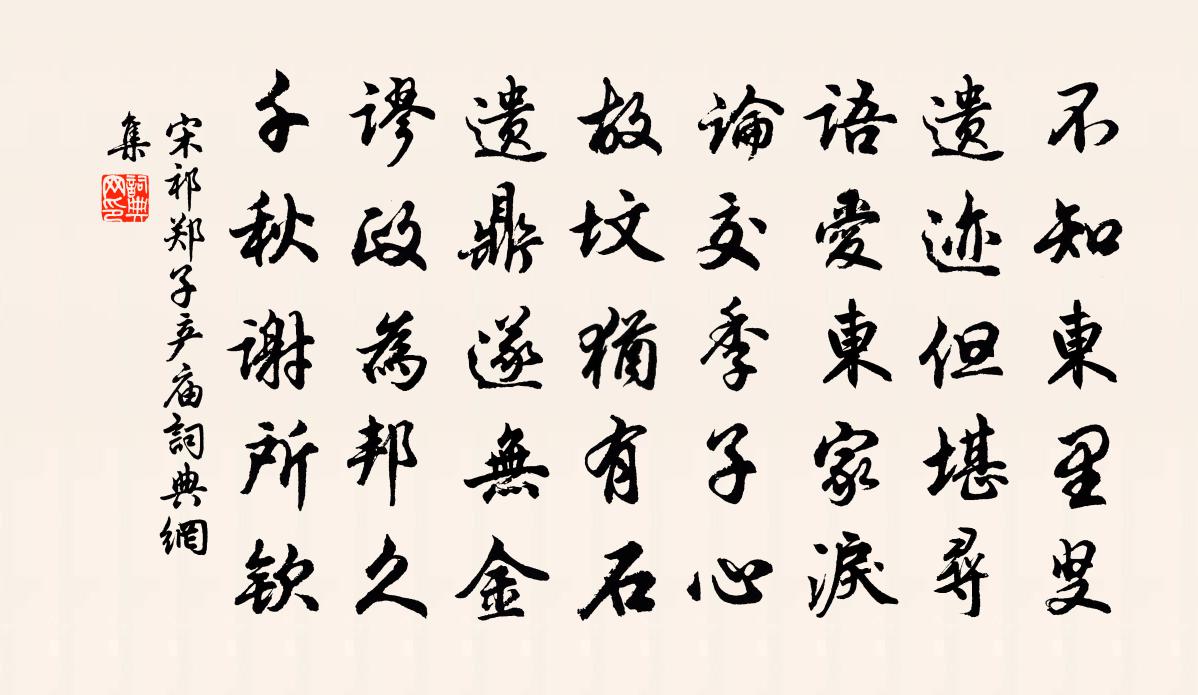 不知東里叟
遗迹但堪尋
語愛東家淚
論交季子心
故坟猶有石
遗鼎遂無金
謬政為邦久
千秋谢所欽
宋祁郑子产庙詞典網
集
詞典
网印